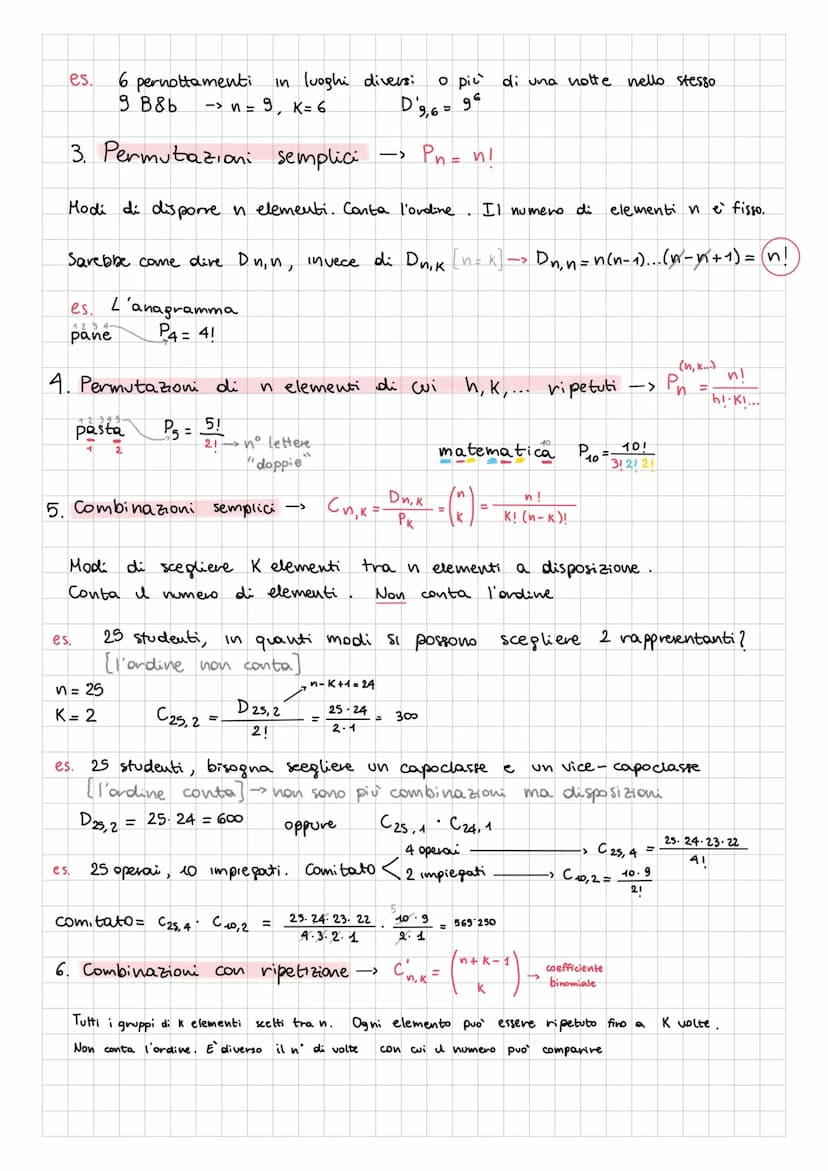 es. 6 pernottamenti in luoghi diversi o più di una notte nello stesso
9 B&b -> n = 9, K = 6 D'9,6 = 9⁶
3. Permutazioni semplici -> Pn = n!
Modi di disporre n elementi. Conta l'ordine. Il numero di elementi n è fisso.
Sarebbe come dire Dn,n, invece di Dn,K [n = K] -> Dn,n = n(n-1)...(n-n+1) = n!
es. L'anagramma
1 2 3 4
pane P4 = 4!
4. Permutazioni di n elementi di cui h, K, ... ripetuti -> Pn^(h,K...) = n! / h!·K!...
1 2 3 4 5
pasta P5 = 5! / 2! -> n° lettere "doppie"
1 2
matematica 10 P10 = 10! / 3! 2! 2!
5. Combinazioni semplici -> Cn,K = Dn,K / PK = (n K) = n! / K! (n-K)!
Modi di scegliere K elementi tra n elementi a disposizione.
Conta il numero di elementi. Non conta l'ordine
es. 25 studenti, in quanti modi si possono scegliere 2 rappresentanti?
[l'ordine non conta]
n = 25 n-K+1 = 24
K = 2 C25,2 = D25,2 / 2! = 25·24 / 2·1 = 300
es. 25 studenti, bisogna scegliere un capoclasse e un vice-capoclasse
[l'ordine conta] -> non sono più combinazioni ma disposizioni
D25,2 = 25·24 = 600 oppure C25,1 · C24,1
es. 25 operai, 10 impiegati. Comitato < 4 operai -> C25,4 = 25·24·23·22 / 4!
2 impiegati -> C10,2 = 10·9 / 2!
comitato = C25,4 · C10,2 = 25·24·23·22 / 4·3·2·1 · 5 10·9 / 2·1 = 569·250
6. Combinazioni con ripetizione -> C'n,K = (n+K-1 K) -> coefficiente binomiale
Tutti i gruppi di K elementi scelti tra n. Ogni elemento può essere ripetuto fino a K volte.
Non conta l'ordine. È diverso il n° di volte con cui il numero può comparire